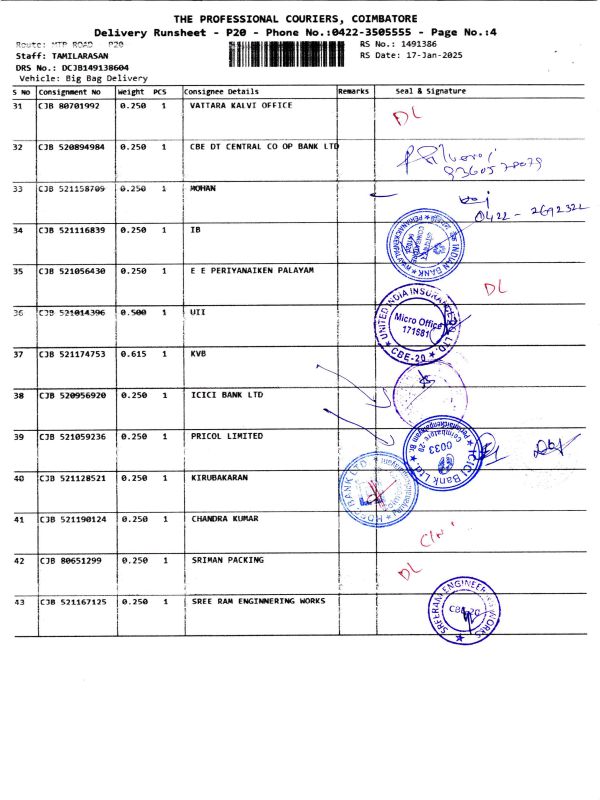 THE PROFESSIONAL COURIERS, COIMBATORE
Delivery Runsheet - P20 - Phone No.:0422-3505555 - Page No.:4
Route: MTP ROAD P20
RS No.: 1491386
Staff: TAMILARASAN
RS Date: 17-Jan-2025
DRS No.: DCJB149138604
Vehicle: Big Bag Delivery
S No Consignment No Weight PCS Consignee Details Remarks Seal & Signature
31 CJB 80701992 0.250 1 VATTARA KALVI OFFICE DL
32 CJB 520894984 0.250 1 CBE DT CENTRAL CO OP BANK LTD
33 CJB 521158709 0.250 1 MOHAN
0422 - 2692322
34 CJB 521116839 0.250 1 IB
INDIAN BANK
35 CJB 521056430 0.250 1 E E PERIYANAIKEN PALAYAM DL
36 CJB 521014396 0.500 1 UII
UNITED INDIA INSURANCE CO. LTD.
Micro Office
171881
CBE-20
37 CJB 521174753 0.615 1 KVB
38 CJB 520956920 0.250 1 ICICI BANK LTD
39 CJB 521059236 0.250 1 PRICOL LIMITED
ICICI Bank Ltd.
0033
40 CJB 521128521 0.250 1 KIRUBAKARAN
HDFC BANK LTD
41 CJB 521190124 0.250 1 CHANDRA KUMAR
42 CJB 80651299 0.250 1 SRIMAN PACKING DL
43 CJB 521167125 0.250 1 SREE RAM ENGINNERING WORKS
SREERAM ENGINEERING WORKS
CBE-20